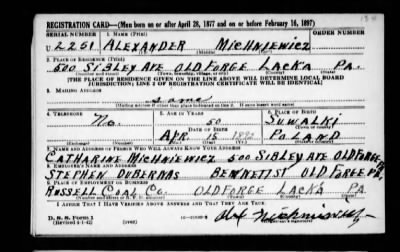 REGISTRATION CARD—(Men born on or after April 28, 1877 and on or before February 16, 1897)
SERIAL NUMBER 1. NAME (Print) ORDER NUMBER
U 2251 ALEXANDER MICHNIEWICZ
(First) (Middle) (Last)
2. PLACE OF RESIDENCE (Print)
500 SIBLEY AVE OLD FORGE LACKA PA.
(Number and street) (Town, township, village, or city) (County) (State)
[THE PLACE OF RESIDENCE GIVEN ON THE LINE ABOVE WILL DETERMINE LOCAL BOARD
JURISDICTION; LINE 2 OF REGISTRATION CERTIFICATE WILL BE IDENTICAL]
3. MAILING ADDRESS
same
[Mailing address if other than place indicated on line 2. If same insert word same]
4. TELEPHONE 5. AGE IN YEARS 6. PLACE OF BIRTH
No 50 SUWALKI
DATE OF BIRTH (Town or county)
APR 15 POLAND
(Exchange) (Number) (Mo.) (Day) (Yr.) (State or country)
7. NAME AND ADDRESS OF PERSON WHO WILL ALWAYS KNOW YOUR ADDRESS
CATHARINE MICHNIEWICZ 500 SIBLEY AVE OLD FORGE
8. EMPLOYER'S NAME AND ADDRESS
STEPHEN BENNETT ST OLD FORGE, PA.
9. PLACE OF EMPLOYMENT OR BUSINESS
RUSSELL COAL CO. OLD FORGE LACKA PA
(Number and street or R. F. D. number) (Town) (County) (State)
I AFFIRM THAT I HAVE VERIFIED ABOVE ANSWERS AND THAT THEY ARE TRUE.
D. S. S. Form 1
(Revised 4-1-42) (over)